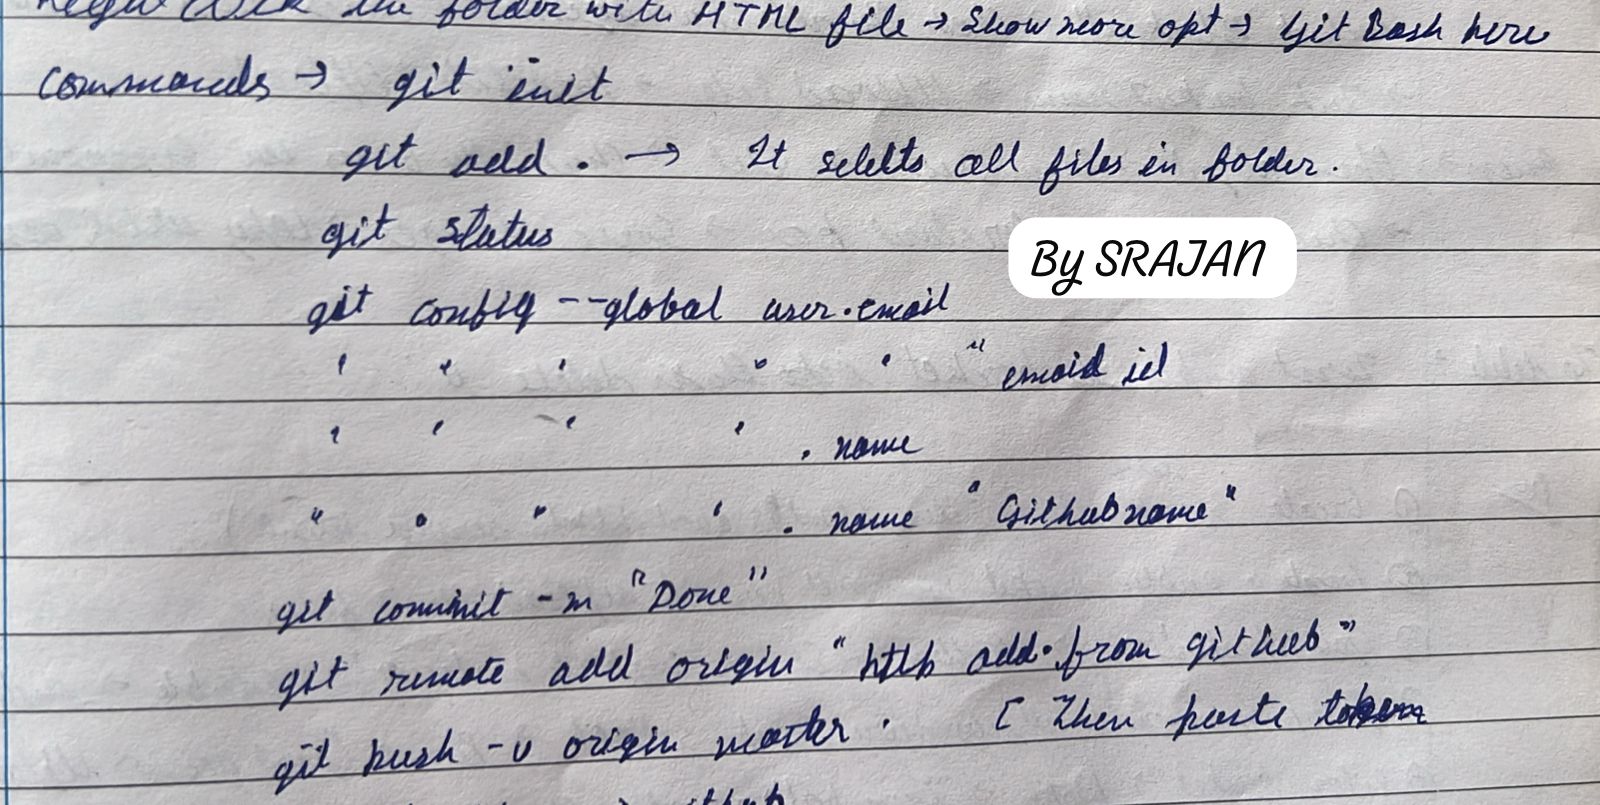 Right click the folder with HTML file → Show more opt → Git Bash here
Commands → git init
git add . → It selects all files in folder.
git status
By SRAJAN
git config --global user.email
" " " " " " email id
" " " " . name
" " " " . name "Githubname"
git commit -m "Done"
git remote add origin "http add. from github"
git push -u origin master . [ Then paste token
github